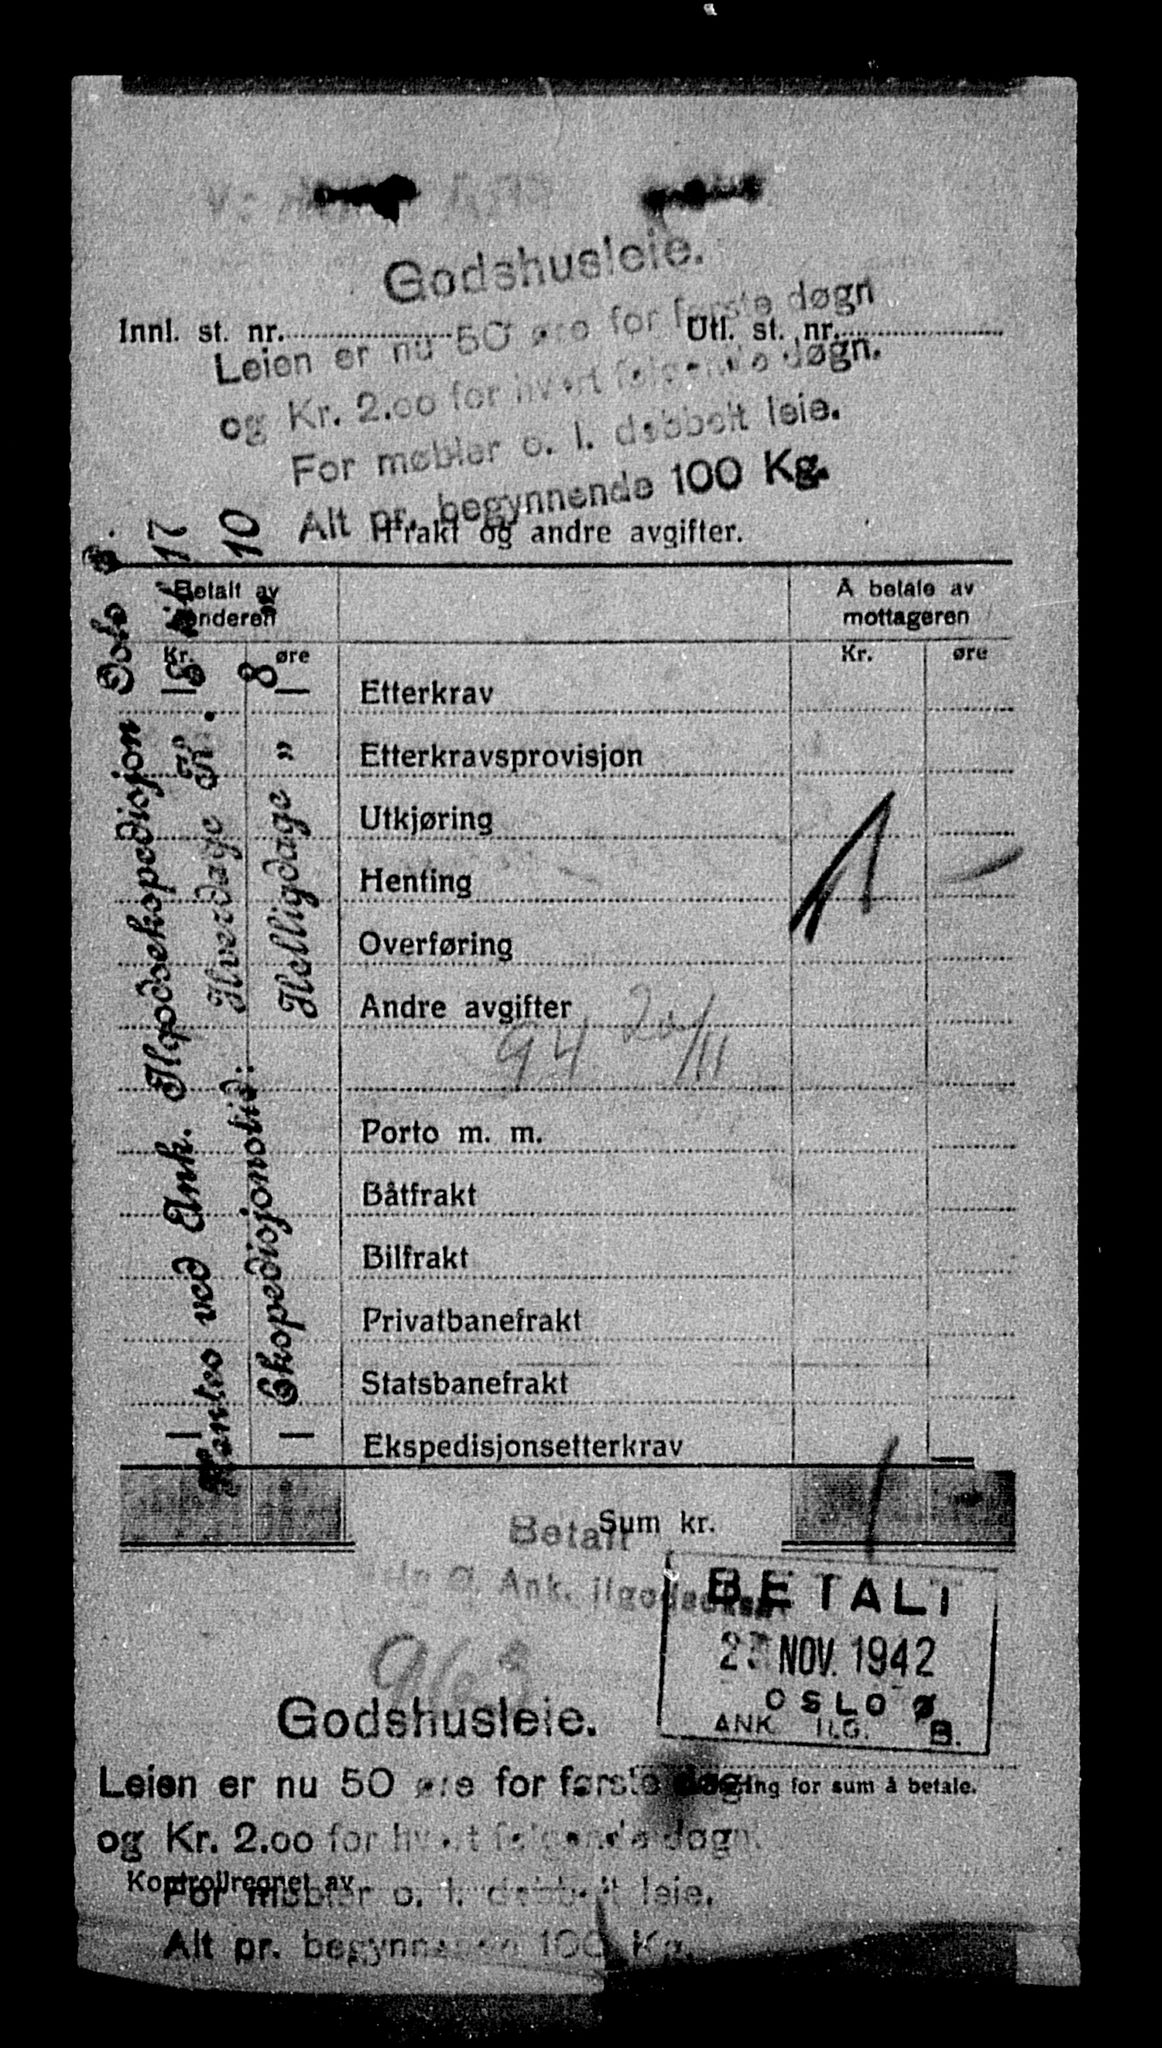 Godshusleie.
Innl. st. nr. Utl. st. nr.
Leien er nu 50 øre for første døgn
og Kr. 2.00 for hvert følgende døgn.
For møbler o. l. dobbelt leie.
Alt pr. begynnende 100 Kg.
Frakt og andre avgifter.
Betalt av senderen
Å betale av mottageren
Kr. øre
Kr. øre
Etterkrav
Etterkravsprovisjon
Utkjøring
Henting
Overføring
Andre avgifter
94 20/11
Porto m. m.
Båtfrakt
Bilfrakt
Privatbanefrakt
Statsbanefrakt
Ekspedisjonsetterkrav
Hentes ved Ank. Ilgodsekspedisjon Oslo Ø.
Ekspedisjonstid: Hverdage Kl. 8 til 17
Helligdage " 8 " 10
Sum kr.
Betalt
Ø. Ank. Ilgodseksp.
BETALT
NOV. 1942
OSLO Ø
ANK. ILG. B.
963
Godshusleie.
for sum å betale.
Leien er nu 50 øre for første døgn
og Kr. 2.00 for hvert følgende døgn.
Kontrollregnet av
For møbler o. l. dobbelt leie.
Alt pr. begynnende 100 Kg.